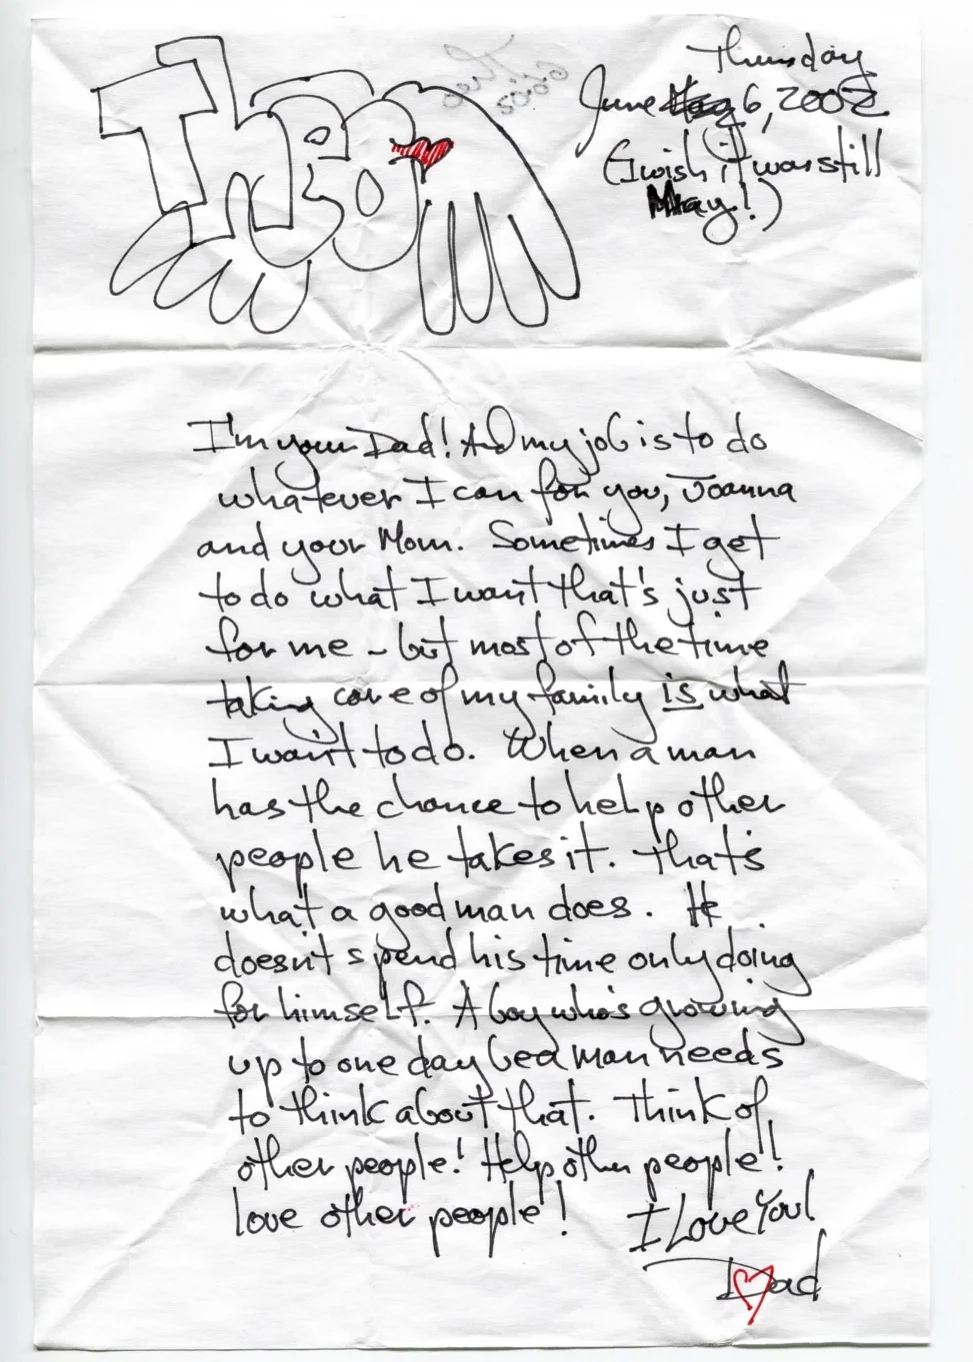 Theo
Thursday
June 6, 2002
(I wish it was still
May!)
I'm your Dad! And my job is to do
whatever I can for you, Joanna
and your Mom. Sometimes I get
to do what I want that's just
for me - but most of the time
taking care of my family is what
I want to do. When a man
has the chance to help other
people he takes it. That's
what a good man does. He
doesn't spend his time only doing
for himself. A boy who's growing
up to one day be a man needs
to think about that. Think of
other people! Help other people!
Love other people! I Love You!
Dad